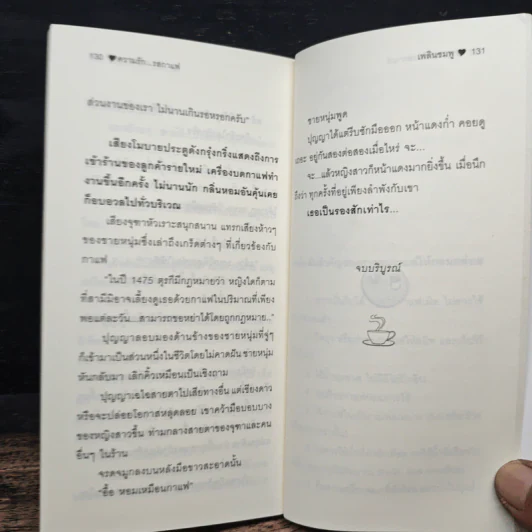 130 ♥ ความรัก...รสกาแฟ
ส่วนงานของเรา ไม่นานเกินรอหรอกครับ"
เสียงโมบายประตูดังกรุ๋งกริ๋งแสดงถึงการ
เข้าร้านของลูกค้ารายใหม่ เครื่องบดกาแฟทำ
งานขึ้นอีกครั้ง ไม่นานนัก กลิ่นหอมอันคุ้นเคย
ก็อบอวลไปทั่วบริเวณ
เสียงจุฑาหัวเราะสนุกสนาน แทรกเสียงห้าวๆ
ของชายหนุ่มซึ่งเล่าถึงเกร็ดต่างๆ ที่เกี่ยวข้องกับ
กาแฟ
"ในปี 1475 ตุรกีมีกฎหมายว่า หญิงใดก็ตาม
ที่สามีมิอาจเลี้ยงดูเธอด้วยกาแฟในปริมาณที่เพียง
พอแต่ละวัน...สามารถขอหย่าได้โดยถูกกฎหมาย.."
ปุญญาลอบมองด้านข้างของชายหนุ่มที่จู่ๆ
ก็เข้ามาเป็นส่วนหนึ่งในชีวิตโดยไม่คาดฝัน ชายหนุ่ม
หันกลับมา เลิกคิ้วเหมือนเป็นเชิงถาม
ปุญญาเฉไฉสายตาไปเสียทางอื่น แต่เรียงดาว
หรือจะปล่อยโอกาสหลุดลอย เขาคว้ามือบอบบาง
ของหญิงสาวขึ้น ท่ามกลางสายตาของจุฑาและคน
อื่นๆ ในร้าน
จรดจมูกลงบนหลังมือขาวสะอาดนั้น
"อื้อ หอมเหมือนกาแฟ"
เพลินชมพู ♥ 131
ชายหนุ่มพูด
ปุญญาได้แต่รีบชักมือออก หน้าแดงก่ำ คอยดู
เถอะ อยู่กันสองต่อสองเมื่อไหร่ จะ...
จะ...แล้วหญิงสาวก็หน้าแดงมากยิ่งขึ้น เมื่อนึก
ถึงว่า ทุกครั้งที่อยู่เพียงลำพังกับเขา
เธอเป็นรองสักเท่าไร...
จบบริบูรณ์